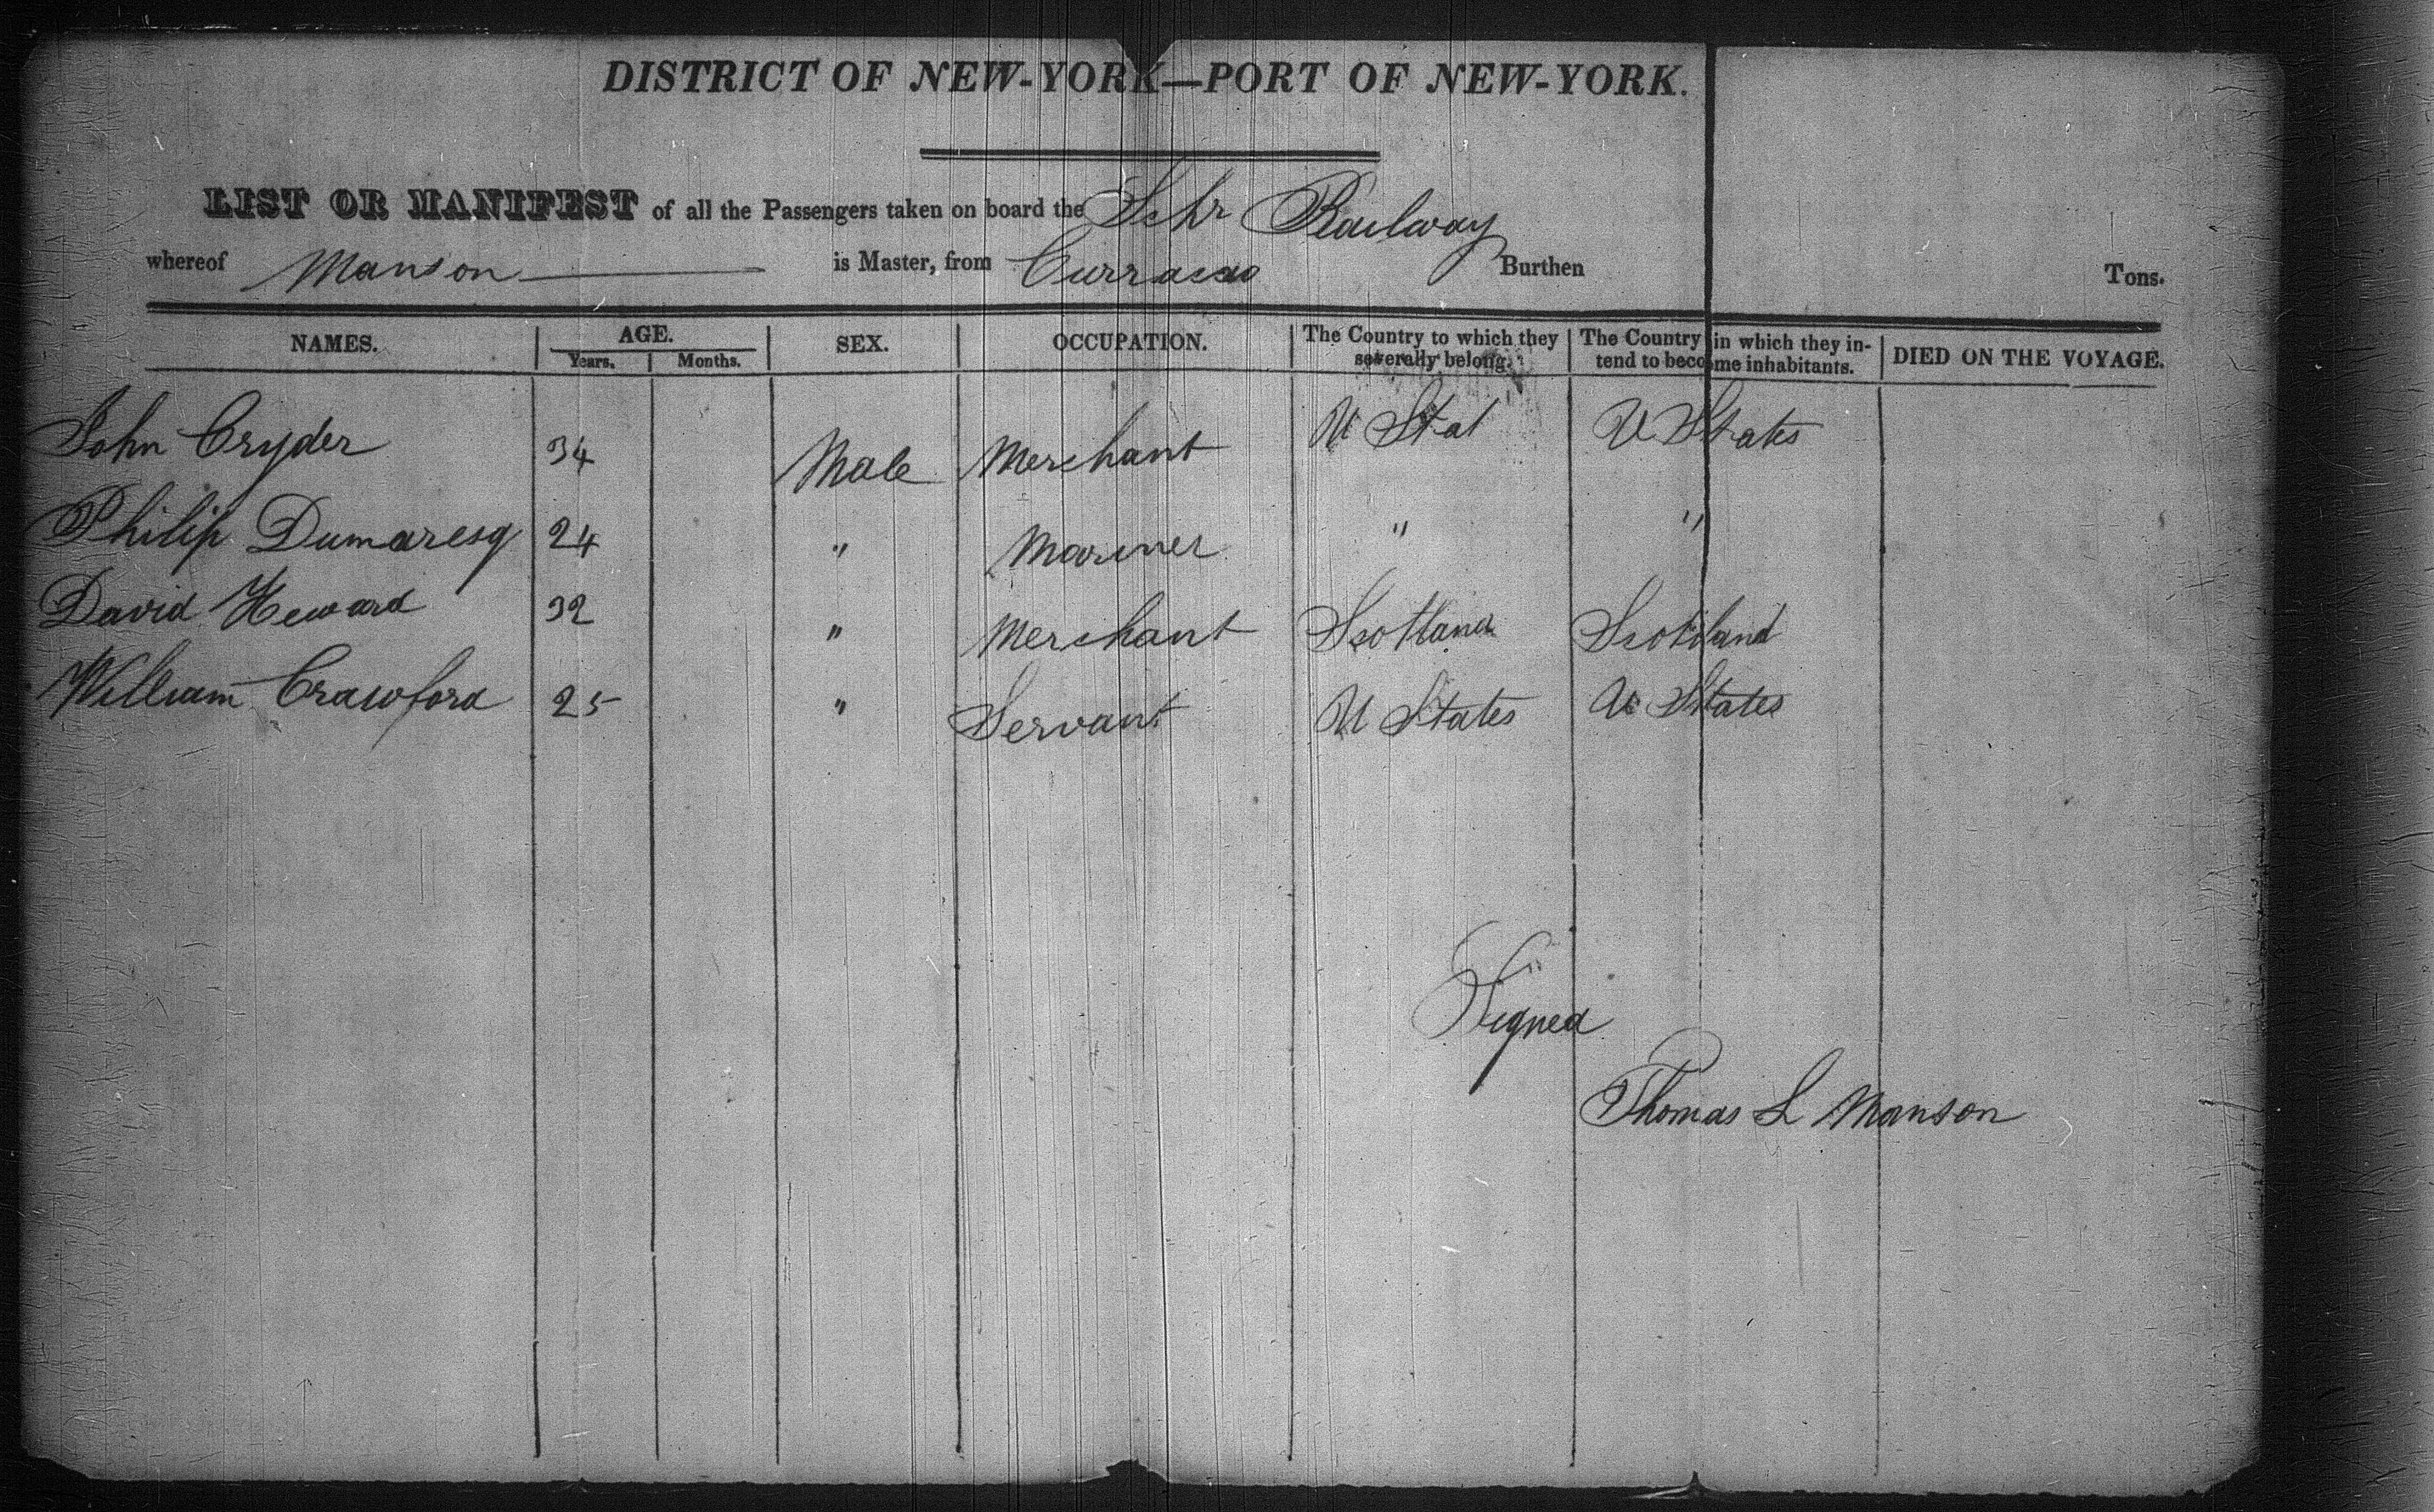 DISTRICT OF NEW-YORK—PORT OF NEW-YORK.
LIST OR MANIFEST of all the Passengers taken on board the Schr Railway
whereof Manson is Master, from Curracao Burthen Tons.
NAMES. AGE. Years. Months. SEX. OCCUPATION. The Country to which they severally belong. The Country in which they intend to become inhabitants. DIED ON THE VOYAGE.
John Cryder 34 Male Merchant U Stat U States
Philip Dumaresq 24 " Mariner " "
David Heward 32 " Merchant Scotland Scotland
William Crawford 25 " Servant U States U States
Signed
Thomas L Manson